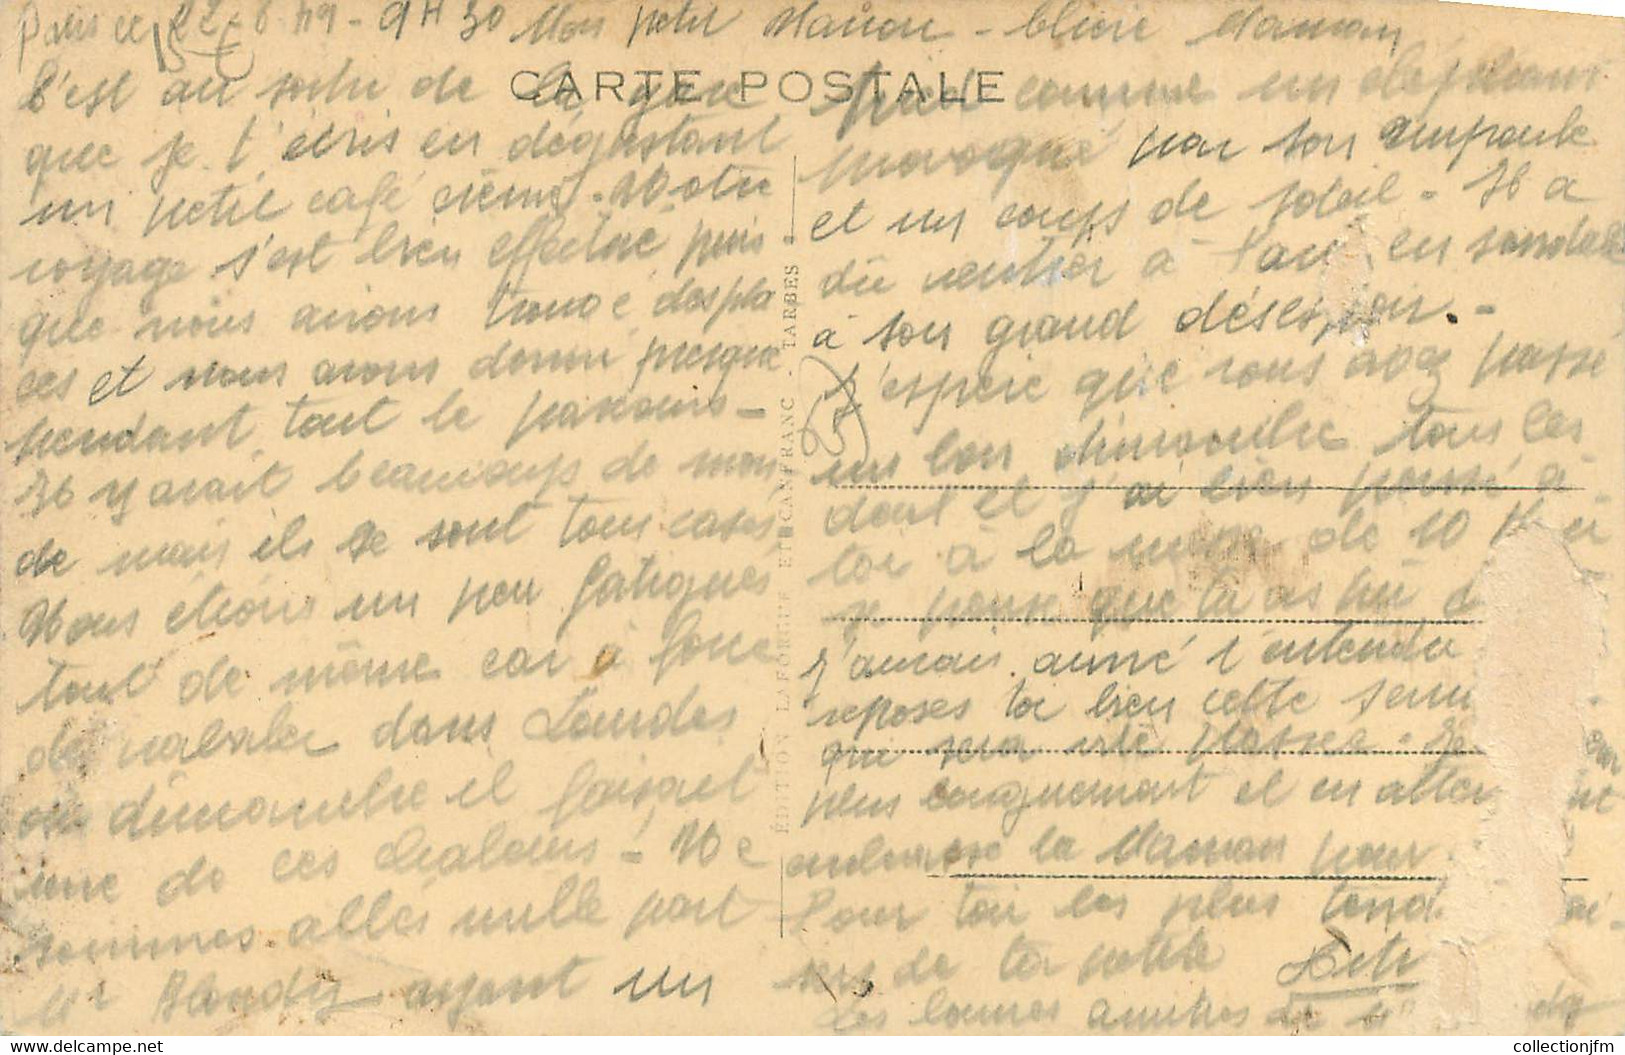 Paris ce 22-8-49 - 9H30 Mon petit Manou - chère Maman
C'est au sortir de la gare
que je t'écris en dégustant
un petit café crème. Notre
voyage s'est bien effectué puis
que nous avions trouvé des pla
ces et nous avons dormi presque
pendant tout le parcours -
Il y avait beaucoup de mon
de mais ils se sont tous casés
Nous étions un peu fatigués
tout de même car à force
de valser dans Lourdes
où dimanche il faisait
une de ces chaleurs! Ne
sommes allés nulle part
Mr Blondy ayant un
CARTE POSTALE
comme un
par son ampoule
et un coups de soleil - Il a
dû rentrer à Pau en sandale
à son grand désespoir. -
J'espère que vous avez passé
un bon dimanche tous les
deux et j'ai bien pensé à
toi à la messe de 10 H
je pense que tu as
j'aurais aimé t'entendre
reposes toi bien cette sem
que sera vite passée.
plus longuement et en atten nt
embrasse la Maman pour
Pour toi les plus tend
sers de ta petite
Les bonnes amitiés de Mr dy
ÉDITION LAFORGUE ET CANFRANC - TARBES
collectionjfm